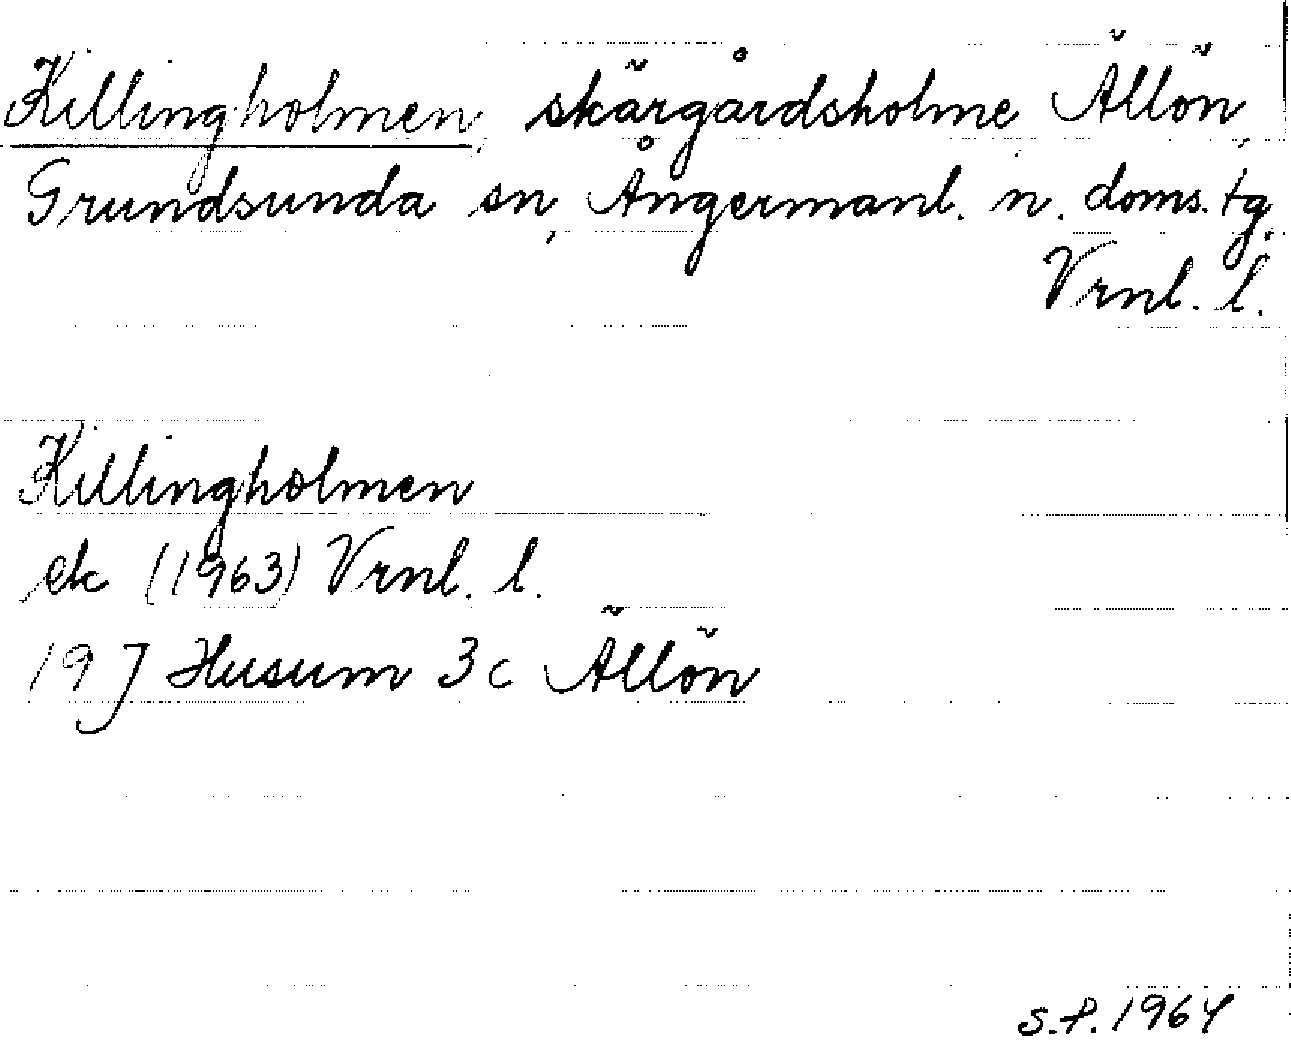 Killingholmen, skärgårdsholme Ällön,
Grundsunda sn, Ångermanl. n. doms. tg.
Vrnl. l.
Killingholmen
ek (1963) Vrnl. l.
19 J Husum 3c Ällön
S.P. 1964